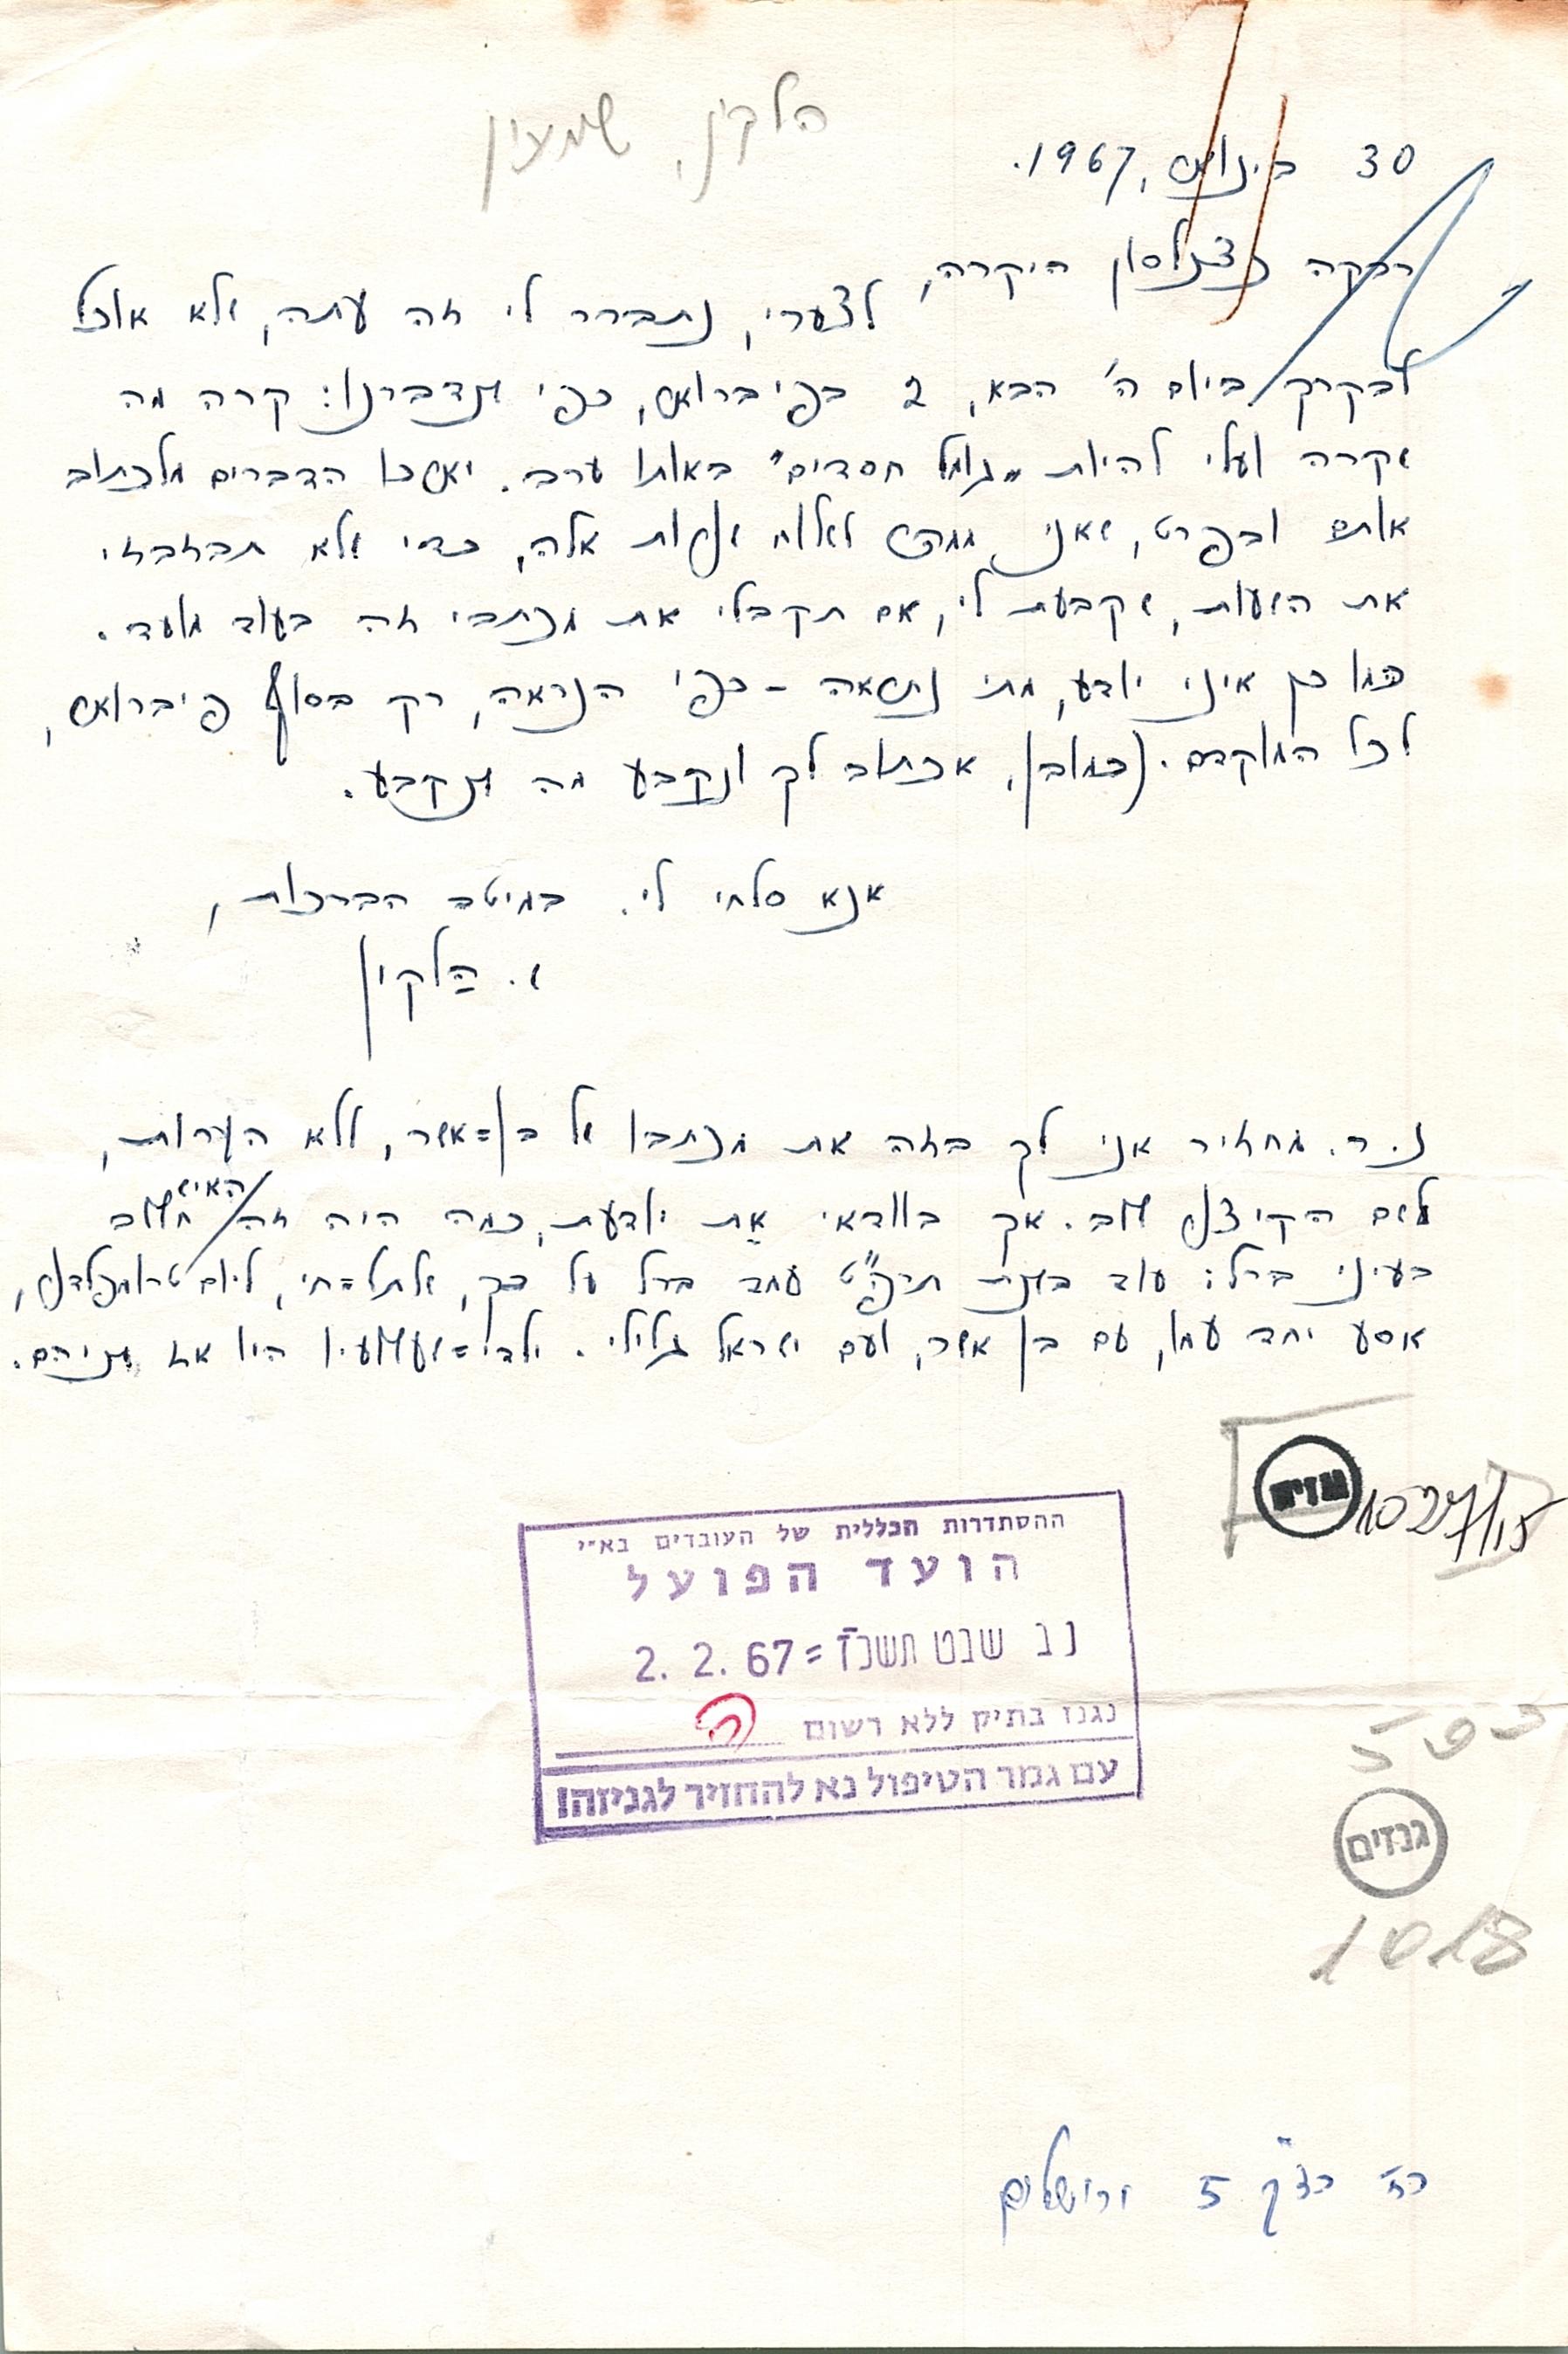 הלקין, שמעון
30 בינואר, 1967.
רבקה כצנלסון היקרה,
לצערי, נתברר לי זה עתה, שלא אוכל
לבקרך ביום ה' הבא, 2 בפיברואר, כפי שנדברנו: קרה מה
שקרה ועלי להיות "גומל חסדים" באותו ערב. יארכו הדברים מלכתוב
אותם ובפרט, שאני ממהר לשלוח שורות אלה, כדי שלא תבזבזי
את השעות, שקבעת לי, אם תקבלי את מכתבי זה בעוד מועד.
כמו כן איני יודע, מתי נתראה - כפי הנראה, רק בסוף פיברואר,
לכל המוקדם. כמובן, אכתוב לך ונקבע מה שנקבע.
אנא סלחי לי. במיטב הברכות,
ש. הלקין
נ.ב. מחזיר אני לך בזה את מכתבו של בן=אשר, ללא הערות,
לשם הקיצור שוב. אך בוודאי את יודעת, כמה היה זה האיש חשוב
בעיני ברל: עוד בשנת תרפ"ט עמד ברל על כך, שלתל=חי, ליום טרומפלדור,
אסע יחד עמו, עם בן אשר, ועם ישראל גלילי. ילדי=שעשועיו היו אז שניהם.
1027/15
ההסתדרות הכללית של העובדים בא"י
הועד הפועל
כב שבט תשכ"ז = 2. 2. 67
נגנז בתיק ללא רשום
עם גמר הטיפול נא להחזיר לגניזה!
גנזים
1018
5 ירושלים